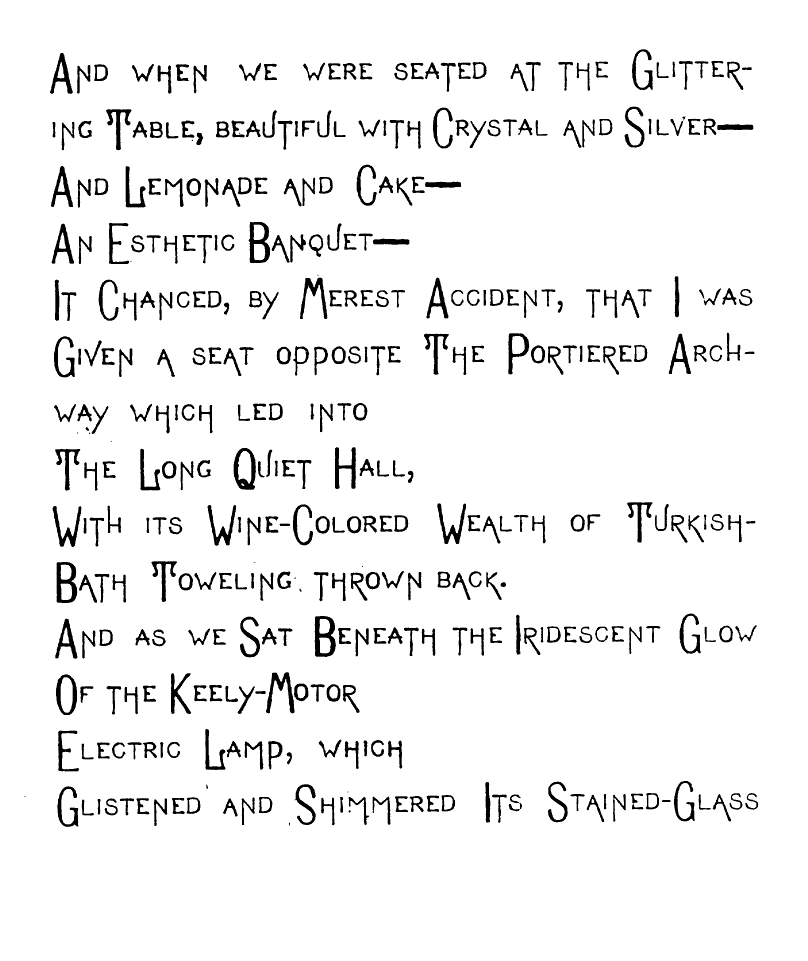 And when we were seated at the Glitter-
ing Table, beautiful with Crystal and Silver—
And Lemonade and Cake—
An Esthetic Banquet—
It Chanced, by Merest Accident, that I was
Given a seat opposite The Portiered Arch-
way which led into
The Long Quiet Hall,
With its Wine-Colored Wealth of Turkish-
Bath Toweling thrown back.
And as we Sat Beneath the Iridescent Glow
Of the Keely-Motor
Electric Lamp, which
Glistened and Shimmered Its Stained-Glass